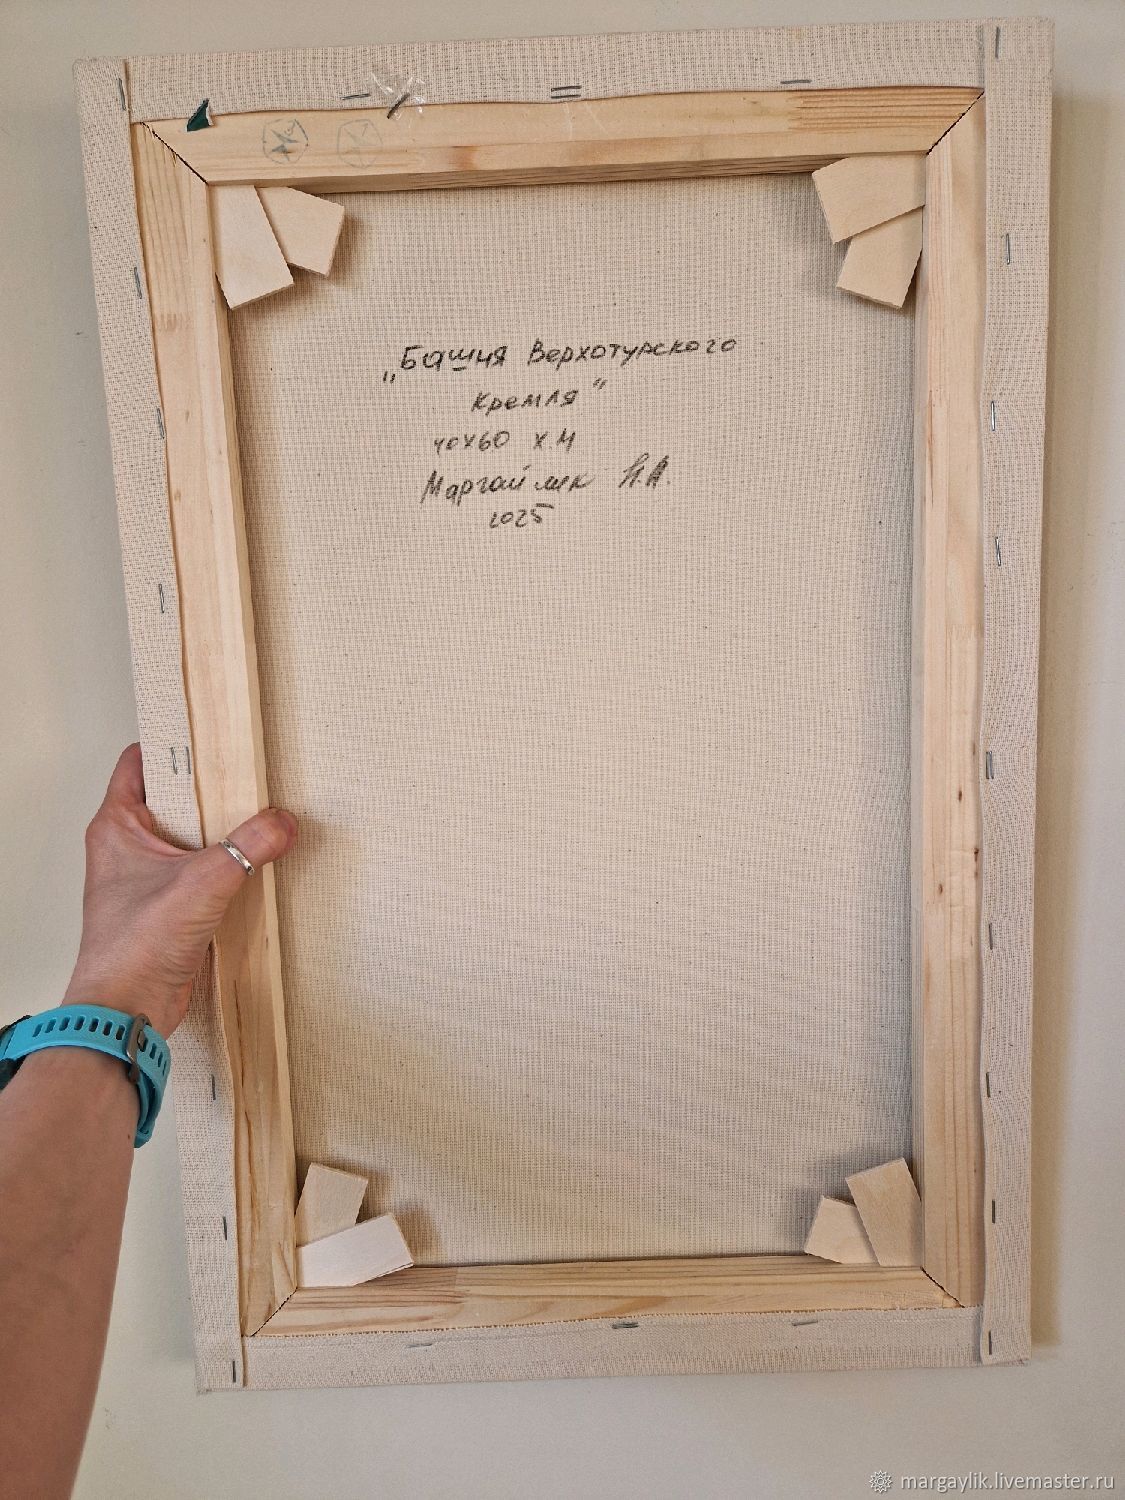 „Башня Верхотурского
Кремля"
40х60 х.м
Маргайлик Н.А.
2025
margaylik.livemaster.ru